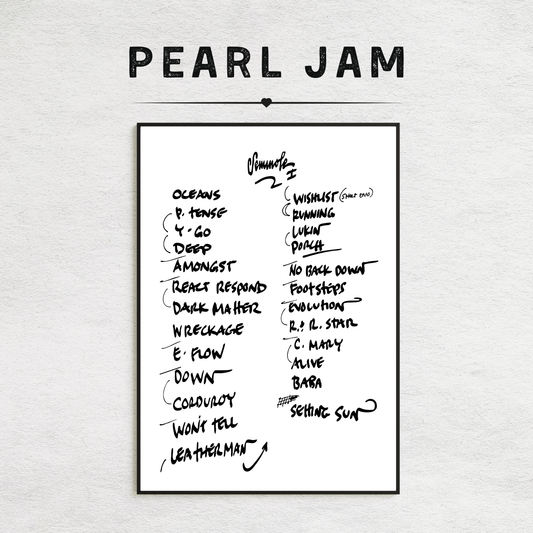 PEARL JAM
Seminole
I
OCEANS
P. TENSE
Y-GO
DEEP
AMONGST
REACT RESPOND
DARK MATTER
WRECKAGE
E-FLOW
DOWN
CORDUROY
WON'T TELL
LEATHERMAN
WISHLIST (SHORT END)
RUNNING
LUKIN
PORCH
NO BACK DOWN
FOOTSTEPS
EVOLUTION
R.R. STAR
C. MARY
ALIVE
BABA
SETTING SUN